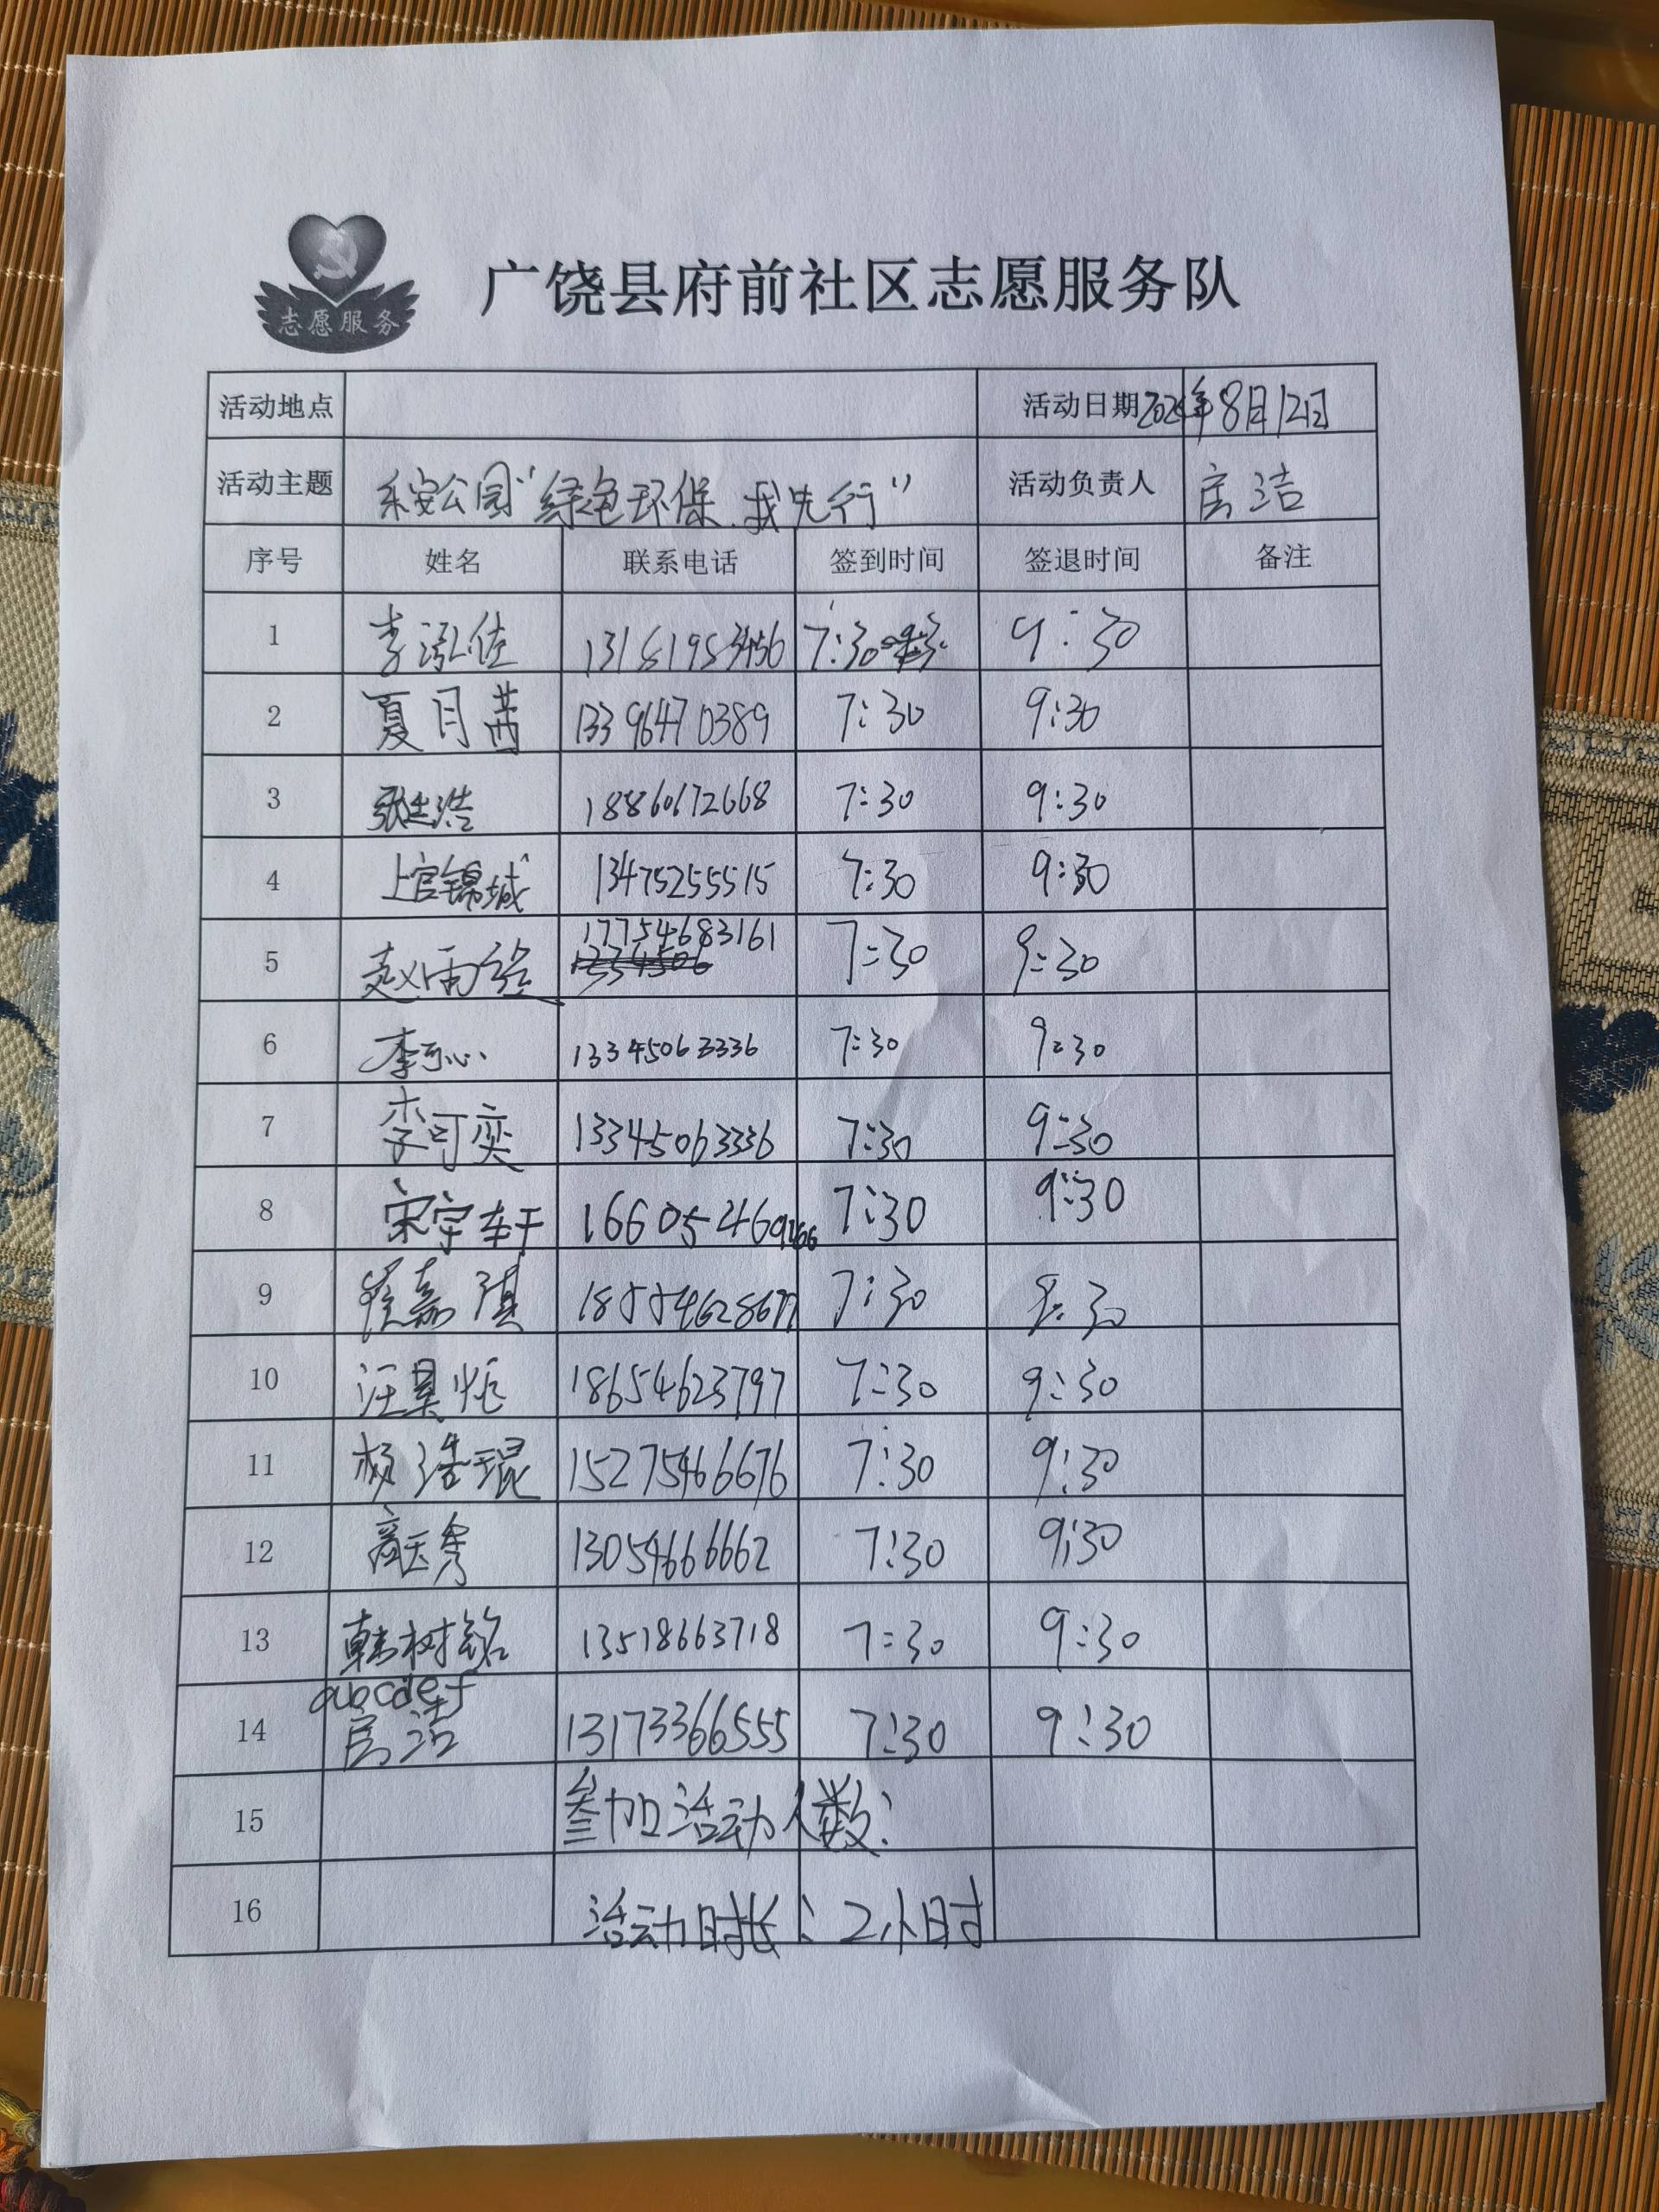 志愿服务
广饶县府前社区志愿服务队
活动地点 活动日期 8月12日
活动主题 乐安公园“绿色环保、我先行” 活动负责人 房洁
序号 姓名 联系电话 签到时间 签退时间 备注
1 李泓佐 7:30 9:30
2 夏月茜 13396470389 7:30 9:30
3 张廷浩 18860672668 7:30 9:30
4 上官锦城 13475255515 7:30 9:30
5 赵雨 17754683161 7:30 9:30
6 李可心 13345063336 7:30 9:30
7 李可奕 13345063336 7:30 9:30
8 宋宇轩 7:30 9:30
9 崔嘉淇 18554628677 7:30 9:30
10 汪昊炬 18654623797 7:30 9:30
11 杨浩琨 15275466676 7:30 9:30
12 13054666662 7:30 9:30
13 韩树铭 13518663718 7:30 9:30
abcdef
14 房洁 13173366555 7:30 9:30
15 参加活动人数:
16 活动时长:2小时